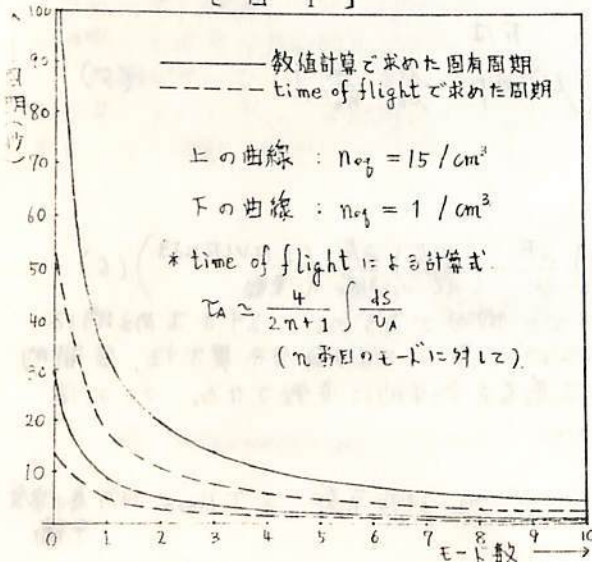 [図 1]
周期(秒)
100
90
80
70
60
50
40
30
20
10
数値計算で求めた固有周期
time of flightで求めた周期
上の曲線 : neq = 15 /cm³
下の曲線 : neq = 1 /cm³
* time of flightによる計算式.
τA ≃ 4/(2n+1) ∫ ds/vA
(n番目のモードに対して).
0 1 2 3 4 5 6 7 8 9 10
モード数 →